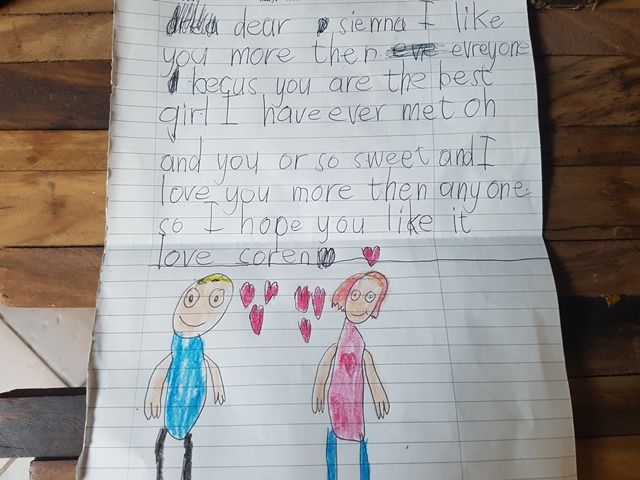 dear sienna I like
you more then evreyone
becus you are the best
girl I have ever met oh
and you or so sweet and I
love you more then any one.
so I hope you like it
love coren